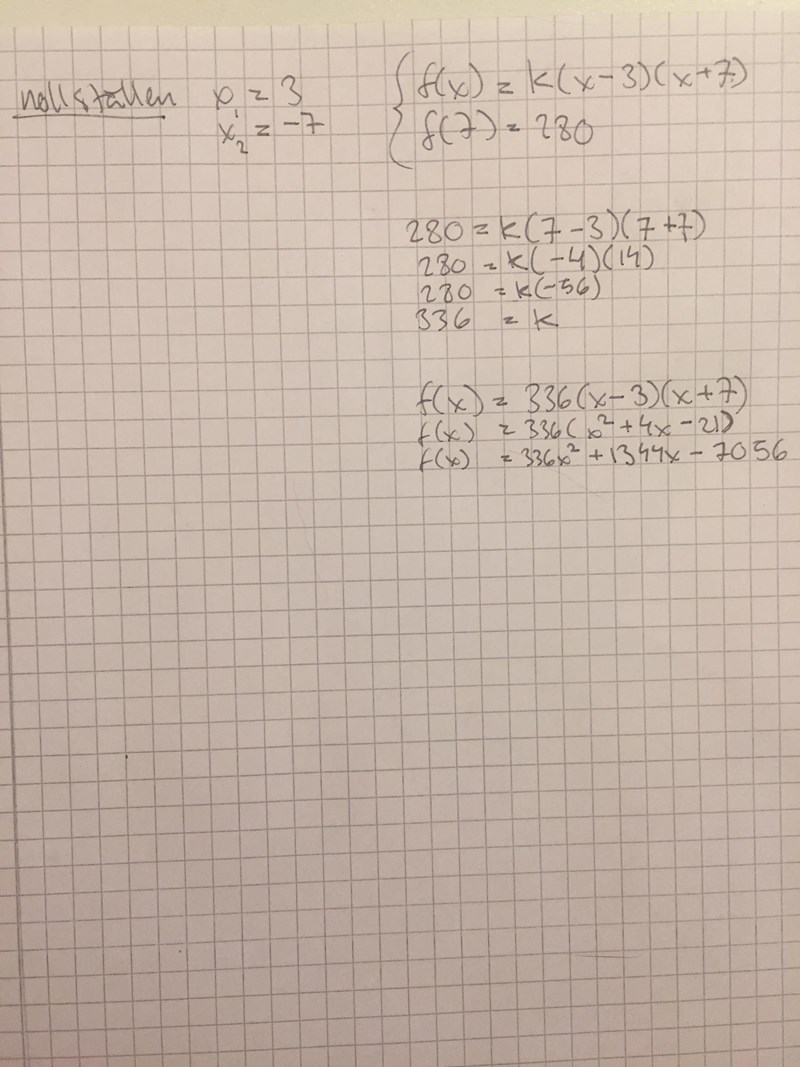 nollställen x₁ = 3
x₂ = -7
{ f(x) = k(x-3)(x+7)
f(7) = 280
280 = k(7-3)(7+7)
280 = k(-4)(14)
280 = k(-56)
336 = k
f(x) = 336(x-3)(x+7)
f(x) = 336(x²+4x-21)
f(x) = 336x²+1344x-7056